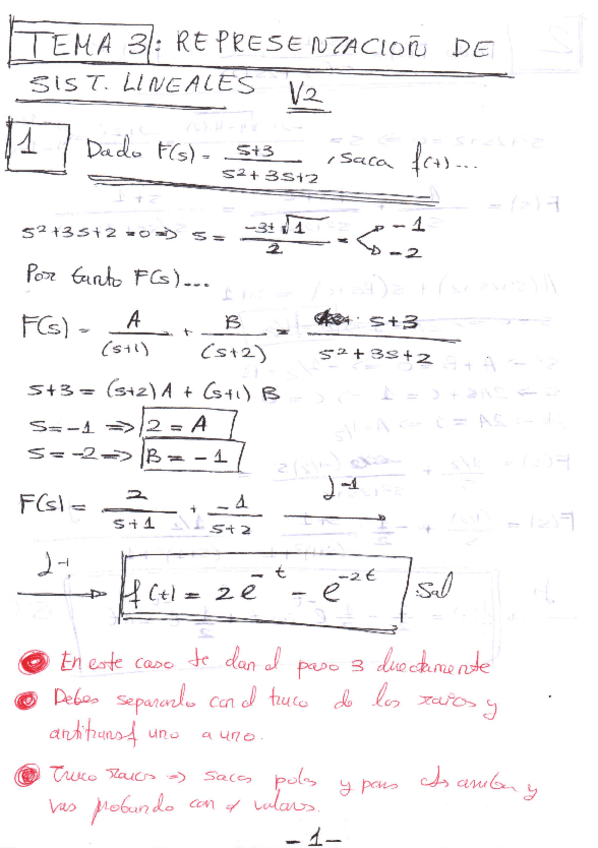 TEMA 3: REPRESENTACIOÑ DE
SIST. LINEALES V2
1 Dado F(s) = s+3 / s²+3s+2 , saca f(t)...
s²+3s+2=0 => s = -3±√1 / 2 = -1
-2
Por tanto F(s)...
F(s) = A / (s+1) + B / (s+2) = s+3 / s²+3s+2
s+3 = (s+2)A + (s+1)B
s=-1 => 2 = A
s=-2 => B = -1
F(s) = 2 / s+1 + -1 / s+2 L⁻¹
L⁻¹ f(t) = 2e^-t - e^-2t Sol
En este caso te dan el paso 3 directamente
Debes separarlo con el truco de las raíces y
antitransf uno a uno.
Truco raíces => sacas polos y pones arriba y
vas probando con valores.
-1-